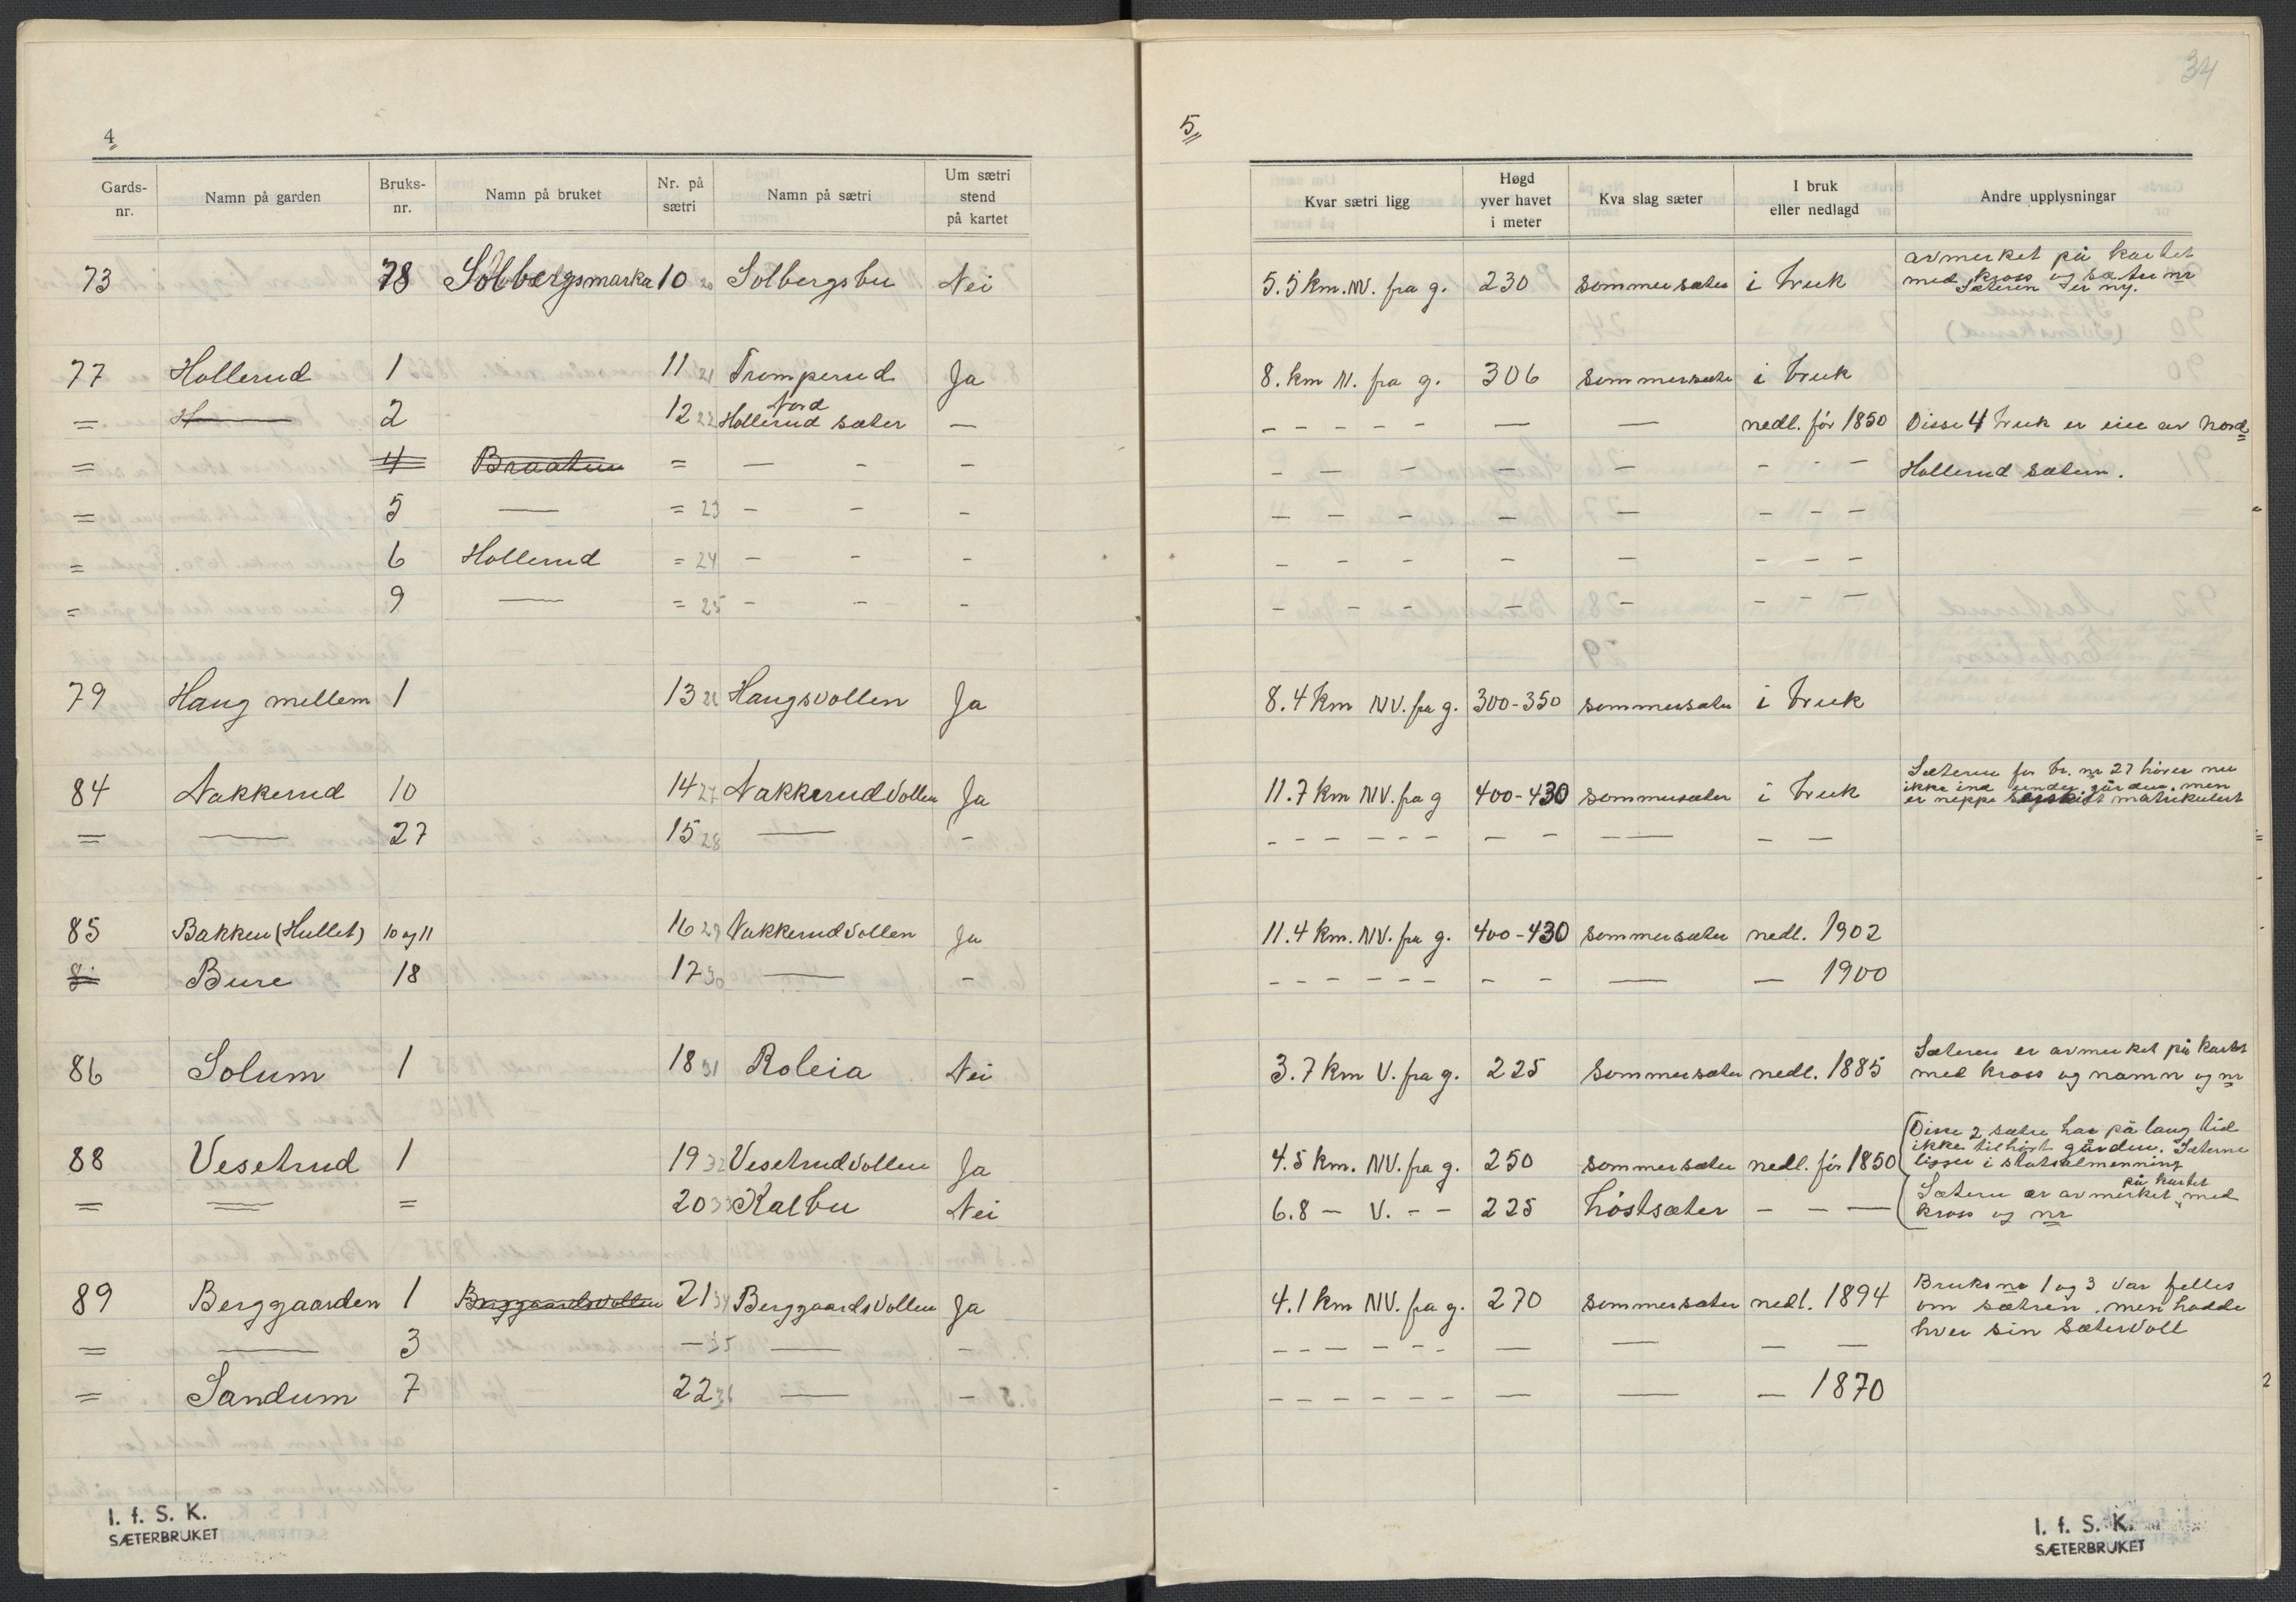 34
4
5
Gards-nr. Namn på garden Bruks-nr. Namn på bruket Nr. på sætri Namn på sætri Um sætri stend på kartet Kvar sætri ligg Høgd yver havet i meter Kva slag sæter I bruk eller nedlagd Andre upplysningar
73 78 Solbergsmarka 10 20 Solbergsbu Nei 5.5 km. NV. fra g. 230 sommersæter i bruk avmerket på kartet
med kross og sæter nr
Sæteren er ny.
77 Hollerud 1 11 21 Tromperud Ja 8. km N. fra g. 306 sommersæter i bruk
= H— 2 12 22 Nord Hollerud sæter — - - - - - — — nedl. før 1850 Disse 4 bruk er eier av Nord=
= 4 Braaten = — - - - - - - - — - - - Hollerud sætern.
= 5 — = 23 - - - - - - - - — - - -
= 6 Hollerud = 24 - - - - - - - - — - - -
= 9 — = 25 - - - - - - - - — - - -
79 Haug mellem 1 13 26 Haugsvollen Ja 8.4 km NV. fra g. 300-350 sommersæter i bruk
84 Nakkerud 10 14 27 Nakkerudvollen Ja 11.7 km NV. fra g 400-430 sommersæter i bruk Sæteren for br. nr 27 hører nu
ikke ind under gården, men
er neppe særskilt matrikulert
= — 27 15 28 — - - - - - - - - - — — — —
85 Bakken (Hullet) 10 og 11 16 29 Nakkerudvollen Ja 11.4 km. NV. fra g. 400-430 sommersæter nedl. 1902
Bure 18 17 30 — - - - - - - - - - — — 1900
86 Solum 1 18 31 Roleia Nei 3.7 km V. fra g. 225 sommersæter nedl. 1885 Sæteren er avmerket på kartet
med kross og namn og nr
88 Vesetrud 1 19 32 Vesetrudvollen Ja 4.5 km. NV. fra g. 250 sommersæter nedl. før 1850 Disse 2 sætre har på lang tid
ikke tilhørt gården. Sæterne
ligger i statsalmenning
= = = 20 33 Kalbu Nei 6.8 — V. - - 225 høstsæter - - — Sætern er avmerket på kartet med
kross og nr
89 Berggaarden 1 Berggaardsvollen 21 34 Berggaardsvollen Ja 4.1 km NV. fra g. 270 sommersæter nedl. 1894 Bruksnr 1 og 3 var felles
om sætren, men hadde
hver sin sætervoll
= — 3 — 35 — - - - - - - - — — — —
= Sandum 7 22 36 — - - - - - - - — — — 1870
I. f. S. K.
SÆTERBRUKET
I. f. S. K.
SÆTERBRUKET